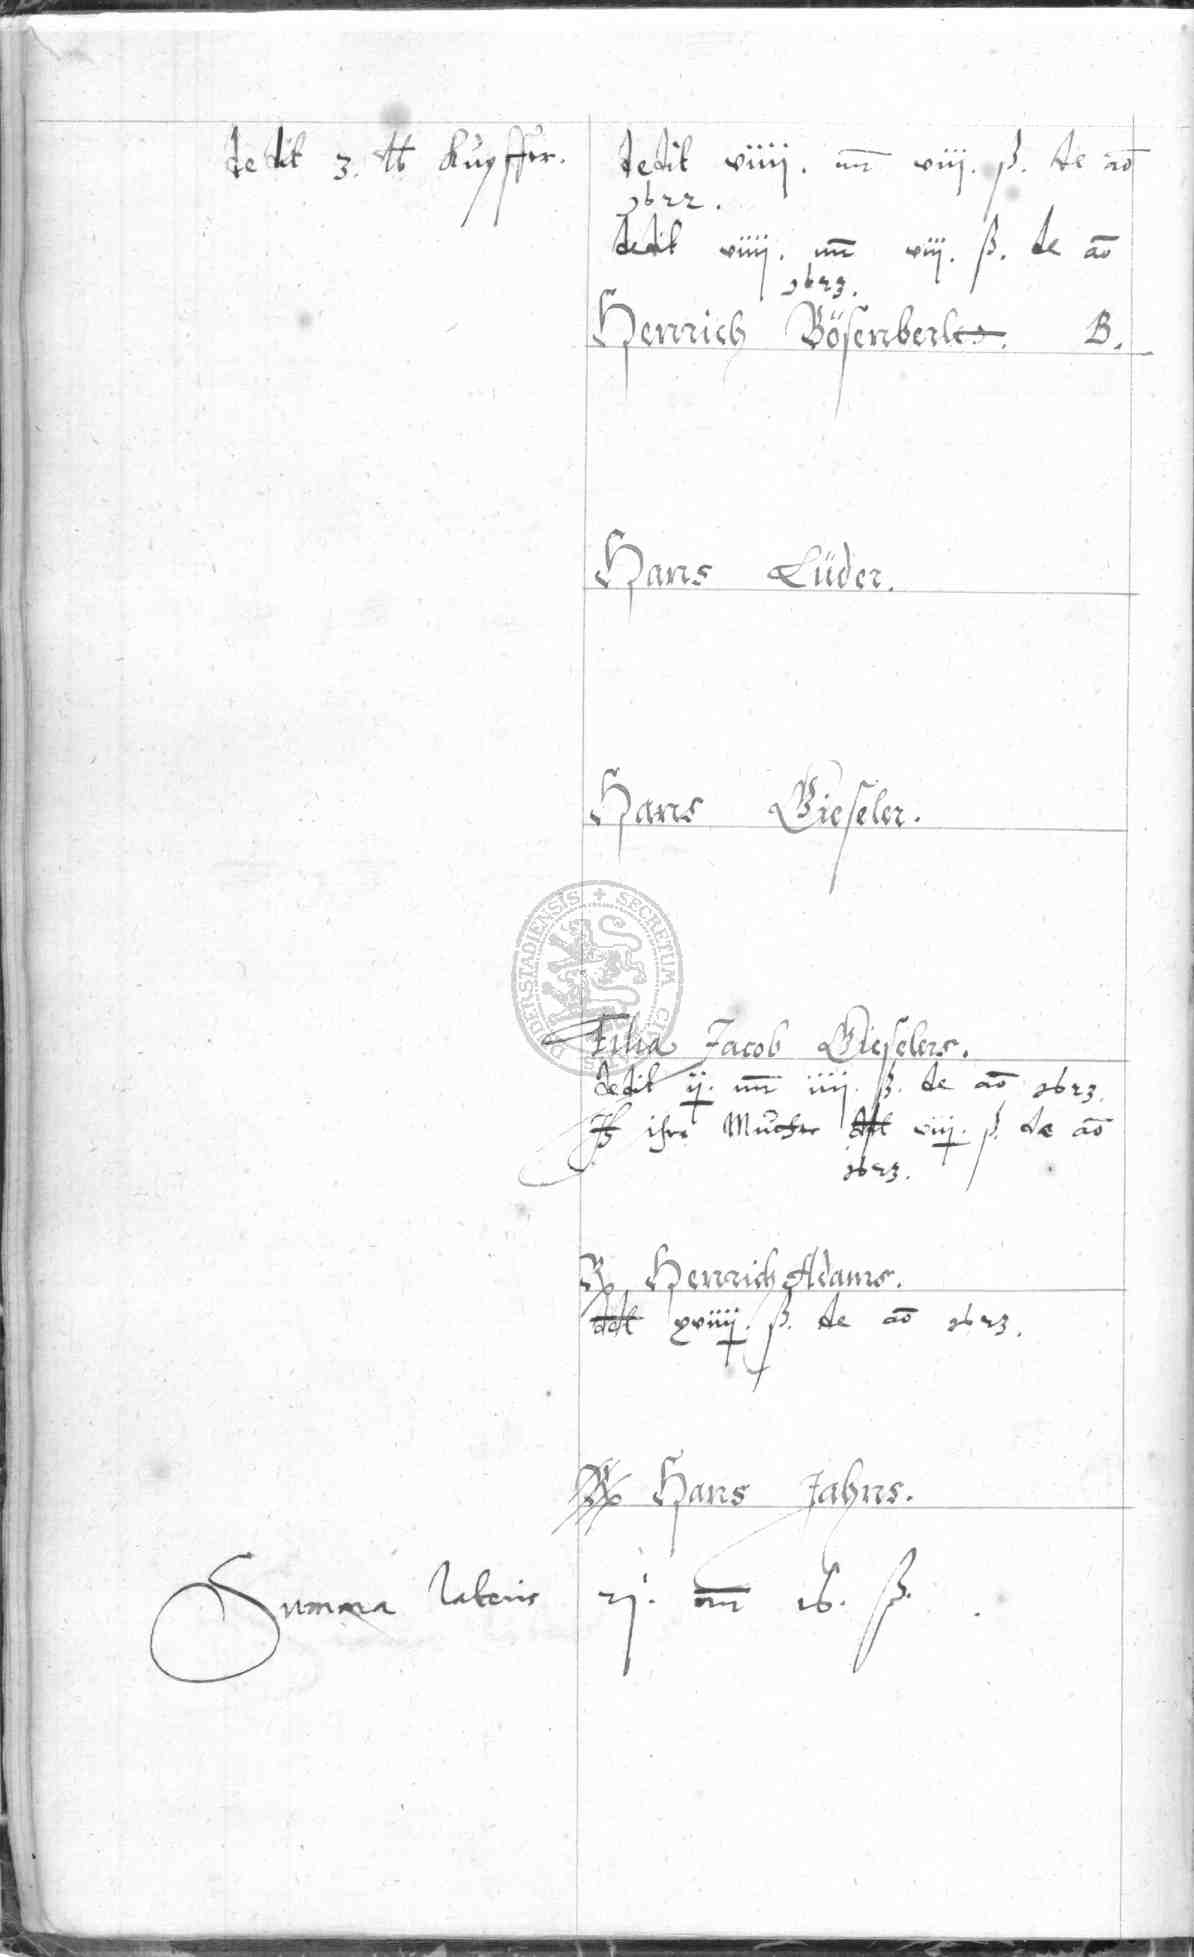 dedit 3. ℔ Kupffer. dedit viiij. m̄ viij. ß. de ao
1622.
dedit viiij. m̄ viij. ß. de ao
1623.
Henrich Bösenberles. B.
Hans Lüder.
Hans Gieseler.
DUDERSTADIENSIS + SECRETUM
Filia Jacob Gieselers.
dedit ij. m̄ iiij. ß. de ao 1623.
ihre Mutter dedit viij. ß. de ao
1623.
Henrich Adams.
dedit xviiij. ß. de ao 1623.
Hans Jahns.
Summa lateris 21. m̄ 16. ß.